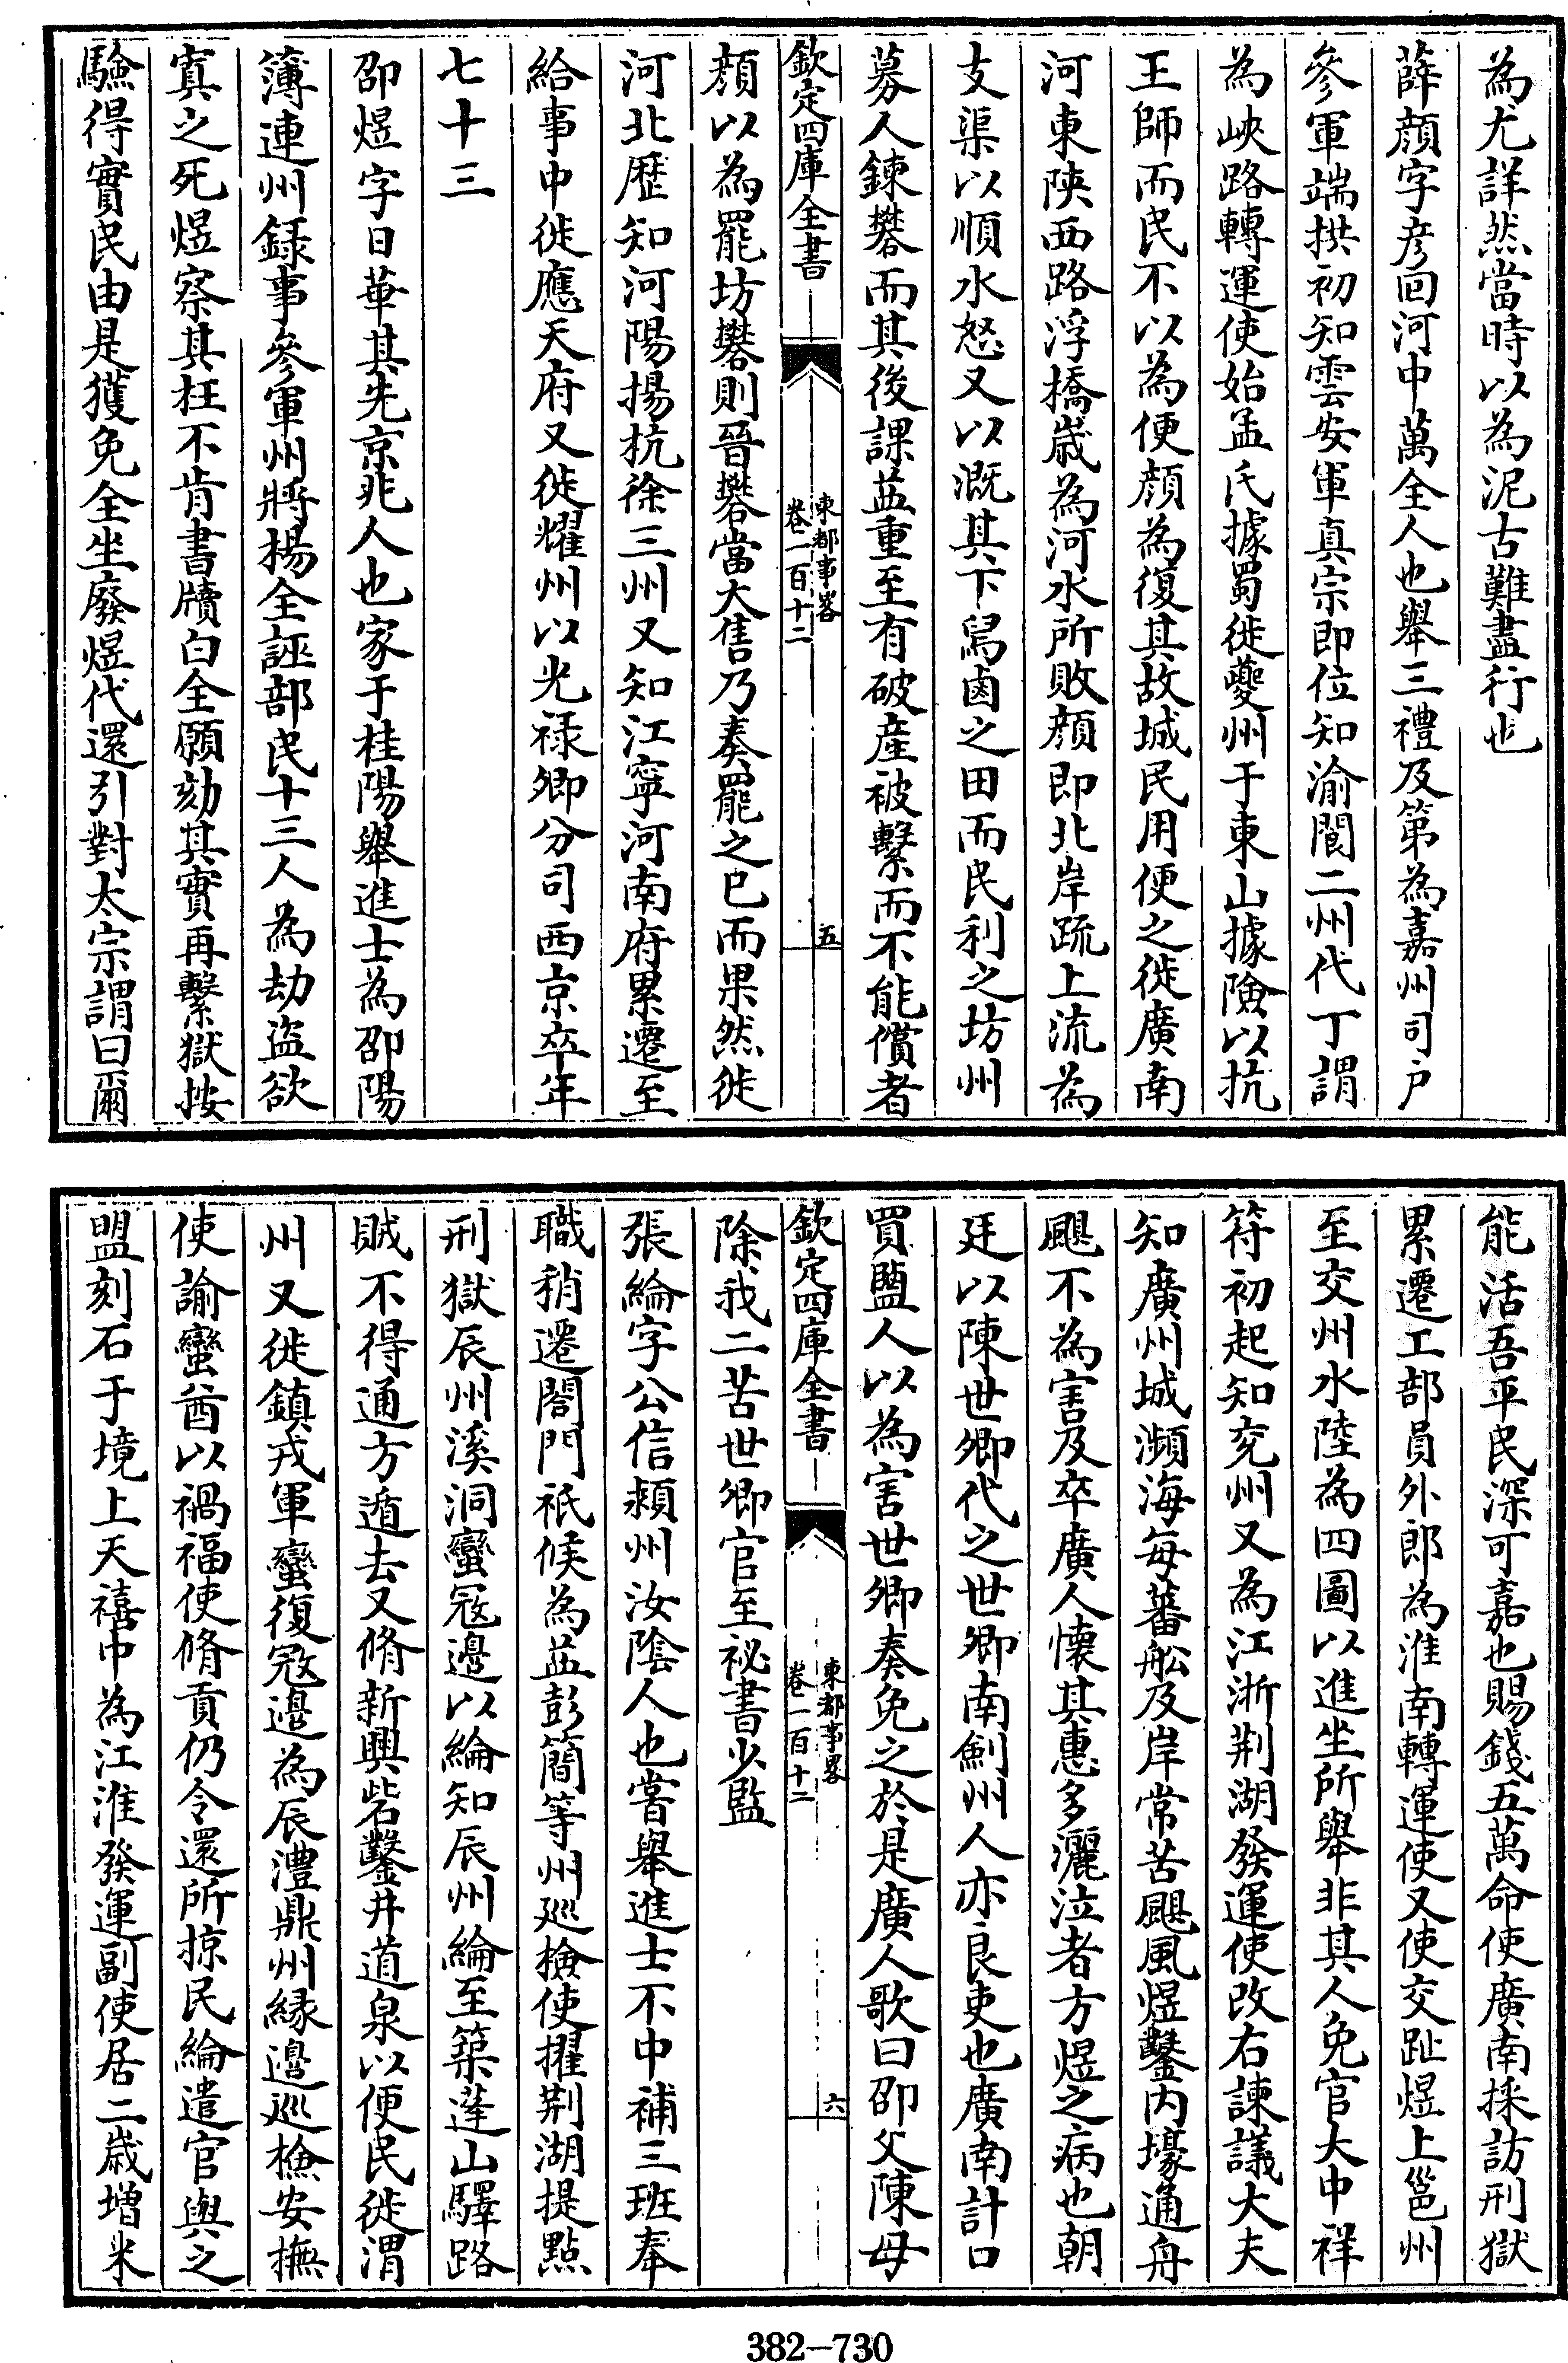 為尤詳然當時以為泥古難盡行也
薛顔字彦回河中萬全人也舉三禮及第為嘉州司户
參軍端拱初知雲安軍真宗即位知渝閬二州代丁謂
為峽路轉運使始孟氏據蜀徙夔州于東山據險以抗
王師而民不以為便顔為復其故城民用便之徙廣南
河東陜西路浮橋歳為河水所敗顔即北岸疏上流為
支渠以順水怒又以溉其下舄鹵之田而民利之坊州
募人鍊礬而其後課益重至有破産被繫而不能償者
欽定四庫全書
東都事畧
卷一百十二
五
顔以為罷坊礬則晉礬當大售乃奏罷之已而果然徙
河北歴知河陽揚杭徐三州又知江寧河南府累遷至
給事中徙應天府又徙耀州以光禄卿分司西京卒年
七十三
邵煜字日華其先京兆人也家于桂陽舉進士為邵陽
簿連州録事參軍州將楊全誣部民十三人為劫盗欲
寘之死煜察其枉不肯書牘白全願劾其實再繫獄按
驗得實民由是獲免全坐廢煜代還引對太宗謂曰爾
能活吾平民深可嘉也賜錢五萬命使廣南採訪刑獄
累遷工部員外郎為淮南轉運使又使交趾煜上邕州
至交州水陸為四圖以進坐所舉非其人免官大中祥
符初起知兖州又為江浙荆湖發運使改右諫議大夫
知廣州城瀕海每蕃舩及岸常苦颶風煜鑿内壕通舟
颶不為害及卒廣人懷其惠多灑泣者方煜之病也朝
廷以陳世卿代之世卿南劍州人亦良吏也廣南計口
買鹽人以為害世卿奏免之於是廣人歌曰邵父陳母
欽定四庫全書
東都事畧
卷一百十二
六
除我二苦世卿官至祕書少監
張綸字公信潁州汝隂人也嘗舉進士不中補三班奉
職稍遷閤門祗候為益彭簡等州廵檢使擢荆湖提點
刑獄辰州溪洞蠻冦邊以綸知辰州綸至築蓬山驛路
賊不得通方遁去又脩新興砦鑿井道泉以便民徙渭
州又徙鎮戎軍蠻復冦邊為辰澧鼎州縁邊廵檢安撫
使諭蠻酋以禍福使脩貢仍令還所掠民綸遣官與之
盟刻石于境上天禧中為江淮發運副使居二歳増米
382-730